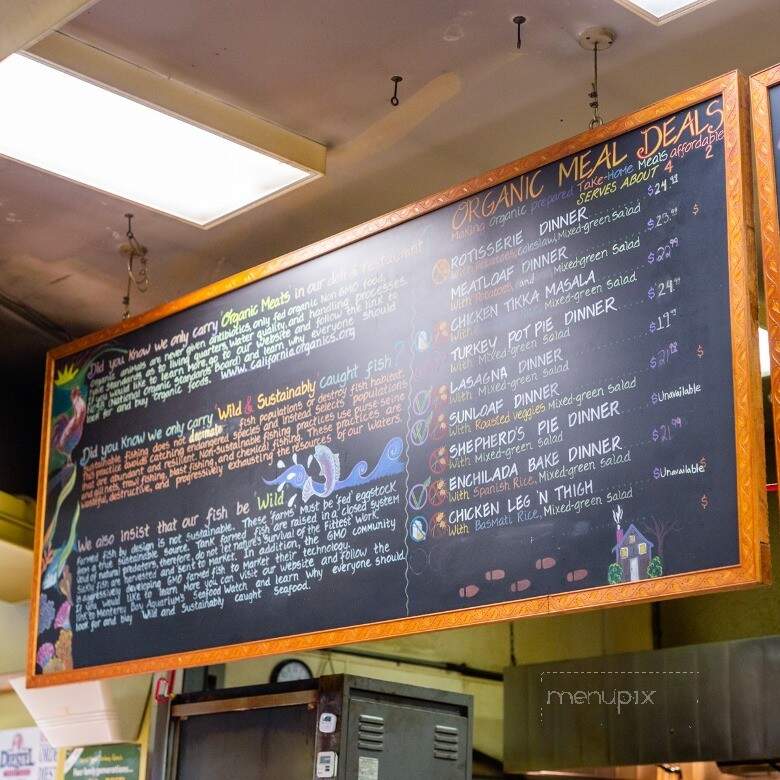 Did you Know we only carry "Organic Meats in our deli & restaurant
Organic animals are never given antibiotics, only fed organic Non GMO food,
have standards as to living quarters, water quality, and handling processes.
If you would like to learn more go to our website and follow the link to
look for and buy organic foods. www.californiaorganics.org
Did you Know we only carry Wild & Sustainably caught fish
Sustainable fishing does not decimate fish populations or destroy fish habitat.
that are abundant and resilient. Non-sustainable fishing practices use purse seine
wasteful, destructive, and progressively exhausting the resources of our Waters.
We also insist that our fish be 'Wild'
Farmed fish by design is not sustainable. These 'farms' must be 'fed' eggstock
from a true sustainable source. 'Tank farmed' fish are raised in a closed system
void of natural predators, therefore, do not let nature's Survival of the Fittest work.
Sick fish are harvested and sent to market. In addition, the GMO community
is aggressively developing GMO farmed fish to Market their technology.
If you would like to learn More you can visit our website and follow the
link to Monterey Bay Aquarium's Seafood Watch and learn why everyone should
look for and buy Wild and Sustainably caught seafood.
ORGANIC MEAL DEALS
Making Organic prepared Take-Home Meals affordable
SERVES ABOUT 4 2
ROTISSERIE DINNER
With Potatoes, coleslaw, Mixed-green Salad
MEATLOAF DINNER
With Potatoes, and Mixed-green Salad
CHICKEN TIKKA MASALA
With Mixed-green Salad
TURKEY POT PIE DINNER
With Mixed-green Salad
LASAGNA DINNER
With Mixed-green Salad
SUNLOAF DINNER
With Roasted veggies Mixed-green Salad
SHEPHERD'S PIE DINNER $Unavailable
With Mixed-green Salad
ENCHILADA BAKE DINNER
With Spanish Rice, Mixed-green Salad
CHICKEN LEG 'N THIGH $Unavailable
With Basmati Rice, Mixed-green Salad
menupix